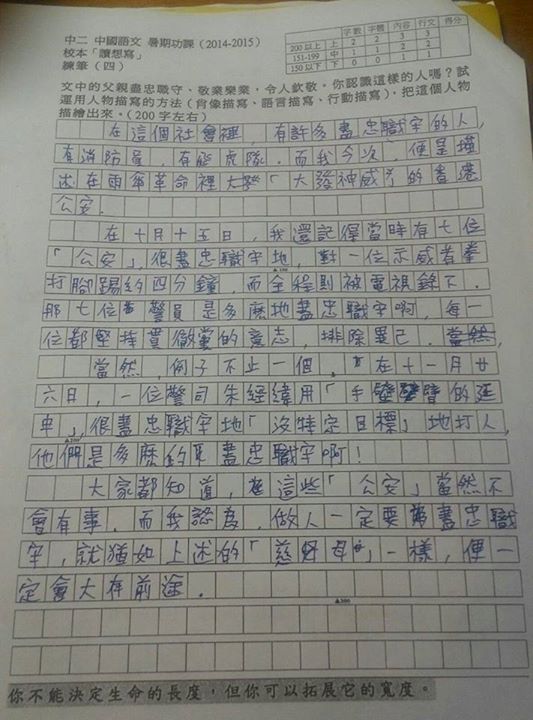 中二 中國語文 暑期功課 (2014-2015)
校本「讀想寫」
練筆（四）
字數 字體 內容 行文 得分
200以上 上 2 2 3 3
151-199 中 1 1 2 2
150以下 下 0 0 1 1
文中的父親盡忠職守、敬業樂業，令人欽敬。你認識這樣的人嗎？試
運用人物描寫的方法（肖像描寫、語言描寫、行動描寫），把這個人物
描繪出來。（200字左右）
在這個社會裡，有許多盡忠職守的人，
有消防員，有飛虎隊．而我今次，便是講
述在雨傘革命裡「大發神威」的香港
公安．
在十月十五日，我還記得當時有七位
「公安」很盡忠職守地，對一位示威者拳
打腳踢約四分鐘，而全程則被電視錄下．
那七位警員是多麼地盡忠職守啊，每一
位都堅持貫徹黨的意志，排除異己．當然，
當然，例子不止一個．在十一月廿
六日，一位警司朱經緯用「手臂的延
伸」，很盡忠職守地「沒特定目標」地打人，
他們是多麼的盡忠職守啊！
大家都知道，這些「公安」當然不
會有事．而我認為，做人一定要盡忠職
守，就猶如上述的「慈母」一樣，便一
定會大有前途．
▲100
▲200
▲300
你不能決定生命的長度，但你可以拓展它的寬度。